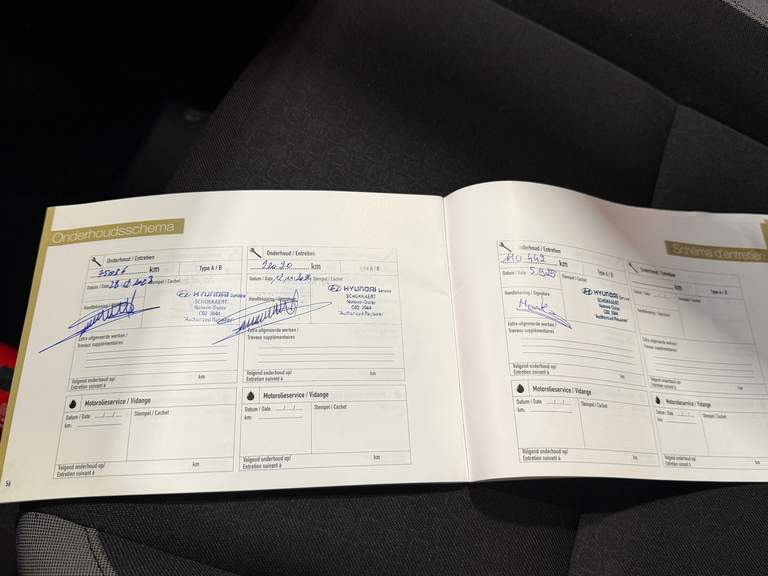 Onderhoudsschema
Onderhoud / Entretien
km Type A / B
Datum / Date Stempel / Cachet
Handtekening / Signature
HYUNDAI Service
SCHOKKAERT
"Authorized Repairer"
Extra uitgevoerde werken /
Travaux supplémentaires
Volgend onderhoud op/ km
Entretien suivant à
Motorolieservice / Vidange
Datum / Date _/_/_ Stempel / Cachet
km
Volgend onderhoud op/ km
Entretien suivant à
Onderhoud / Entretien
km Type A / B
Datum / Date Stempel / Cachet
Handtekening / Signature
HYUNDAI Service
SCHOKKAERT
"Authorized Repairer"
Extra uitgevoerde werken /
Travaux supplémentaires
Volgend onderhoud op/ km
Entretien suivant à
Motorolieservice / Vidange
Datum / Date _/_/_ Stempel / Cachet
km
Volgend onderhoud op/ km
Entretien suivant à
56
Schéma d'entretien
Onderhoud / Entretien
110 449 km
Datum / Date Stempel / Cachet Type A / B
Handtekening / Signature
HYUNDAI Service
SCHOKKAERT
"Authorized Repairer"
Extra uitgevoerde werken /
Travaux supplémentaires
Volgend onderhoud op/ km
Entretien suivant à
Motorolieservice / Vidange
Datum / Date _/_/_ Stempel / Cachet
km
Volgend onderhoud op/ km
Entretien suivant à
Onderhoud / Entretien
km Type A / B
Datum / Date Stempel / Cachet
Handtekening / Signature
Extra uitgevoerde werken /
Travaux supplémentaires
Volgend onderhoud op/ km
Entretien suivant à
Motorolieservice / Vidange
Datum / Date _/_/_ Stempel / Cachet
km
Volgend onderhoud op/
Entretien suivant à